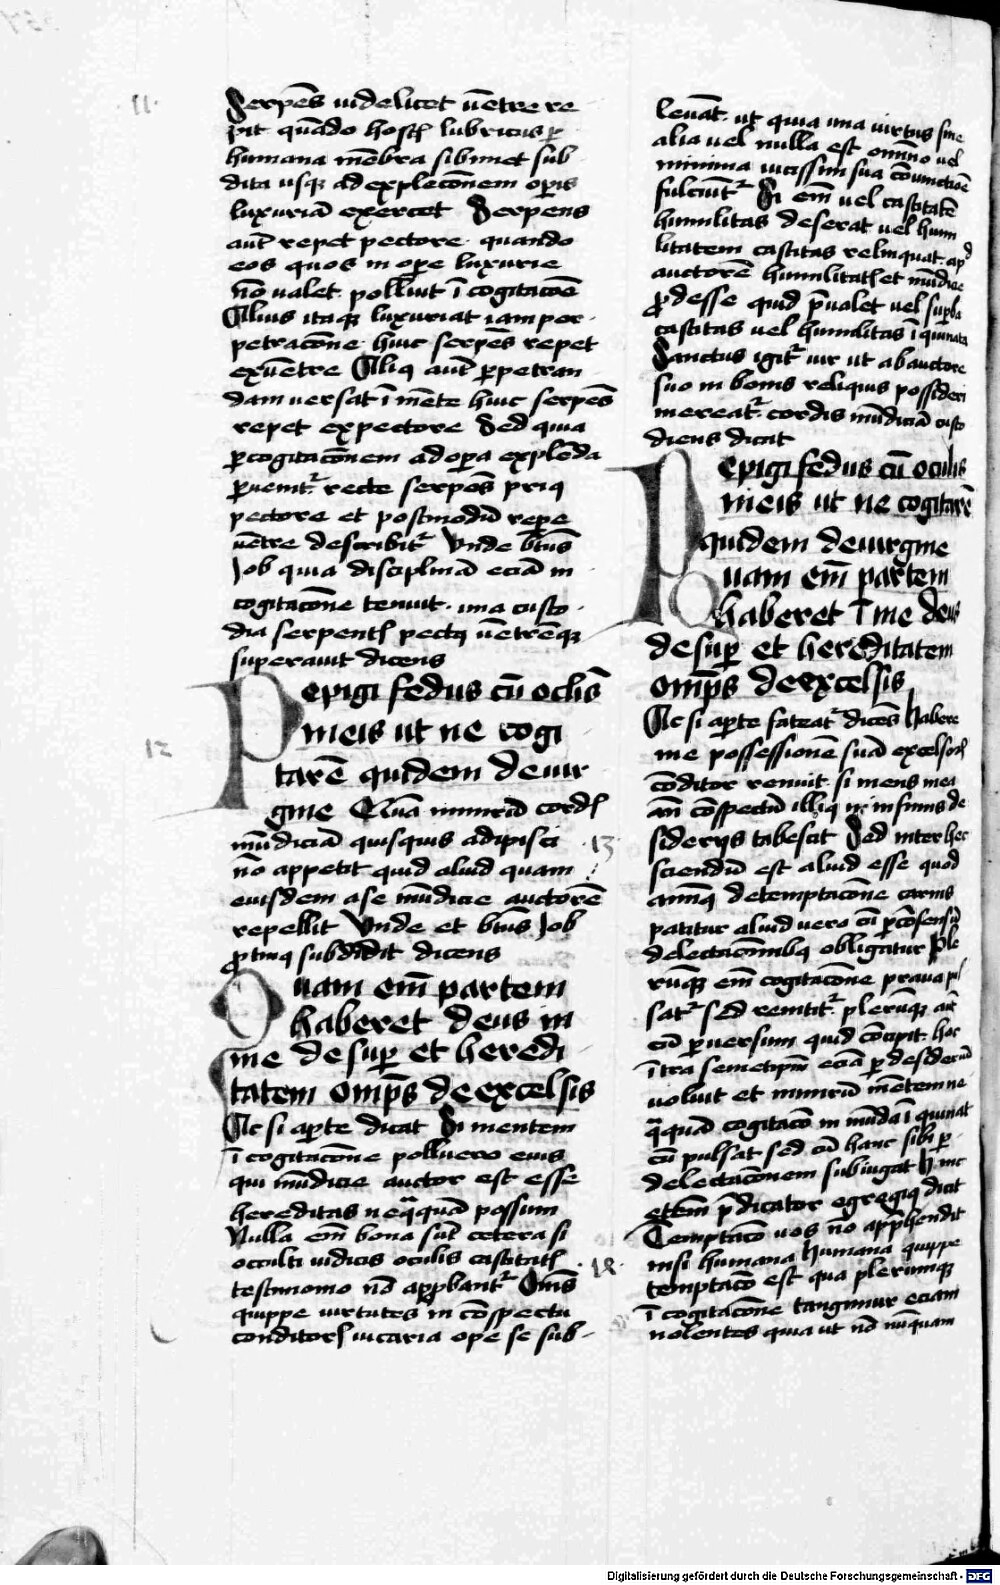 11
Serpēs uidelicet uētre re
pit quādo hostꝭ lubricus ꝑ
humana mēbra sibimet sub
dita usqꝫ ad explecōnem oꝑis
luxuriā exercet Serpens
aut̄ repet pectore quando
eos quos in oꝑe luxurie
nō ualet polluit ī cogitacōe
Alius itaqꝫ luxuriat iam per
petracōne huic serpēs repet
ex uētre Aliꝰ aut̄ ꝑpetran
dam uersat ī mēte huic serpēs
repet ex pectore Sed quia
ꝑ cogitacōnem ad oꝑa explēda
ꝑuenit᷑ recte serpēs priꝰ
pectore et postmodū repe
uētre describit᷑ Vnde btūs
Job quia disciplinā eciā in
cogitacōne tenuit una custo
dia serpentꝭ pectꝰ uētrēqꝫ
superauit dicens
12
Pepigi fedus cū oclīs
meis ut ne cogi
tarē quidem de uir
gine Quā nimirū cordꝭ
mūdiciā quisquis adipisci
nō appetit quid aliud quam
eiusdem a se mūdicie auctorē
repellit Vnde et btūs Job
ꝓtinꝰ subdidit dicens
Quam em̄ partem
haberet deus in
me desuꝑ et heredi
tatem omp̄s de excelsis
Ac si aꝑte dicat Si mentem
ī cogitacōne polluero eius
qui mūdicie auctor est esse
hereditas neq̄quā possum
Nulla em̄ bona sut̄ cetera si
occulti iudicis oculis castitatꝭ
testimonio nō appbant᷑ Om̄s
quippe uirtutes in cōspectu
conditorꝭ uicaria ope se sub
leuāt ut quia una uirtus sine
alia uel nulla est omīno uel
minima uicissim sua cōiunctiōe
fulciūt᷑ Si em̄ uel castitatē
humilitas deserat uel humi
litatem castitas relinquat apd
auctorē humilitatꝭ et mūdicie
ꝓdesse quid p̄ualet uel suꝑba
castitas uel humilitas īquinata
Sanctus igit᷑ uir ut ab auctore
suo in bonis reliquis possideri
mereat᷑ cordis mūdiciā custo
diens dicit
Pepigi fedus cū oculis
meis ut ne cogitarē
quidem de uirgine
Quam em̄ partem
haberet ī me deus
desuꝑ et hereditatem
omp̄s de excelsis
Ac si aꝑte fateat᷑ dicēs habere
me possessionē suā excelsorꝭ
cōditor renuit si mens mea
an̄ cōspectū illiꝰ in infimis de
siderijs tabescit Sed inter hec
13
sciendū est aliud esse quod
animꝰ de temptacōne carnis
patitur aliud uero cū ꝑ cōsensū
delectacōnibꝰ obligatur Ple
rūqꝫ em̄ cogitacōne praua pul
sat᷑ sed renitit᷑ plerūqꝫ aūt
cū ꝑuersum quid cōcipit hoc
ītra semetipm̄ eciā ꝑ desideriū
uoluit et nimirū mētem ne
q̄quā cogitacō inmūda īquinat
cū pulsat sed cū hanc sibi ꝑ
delectacōnem subiugat Hinc
etem̄ p̄dicator egregiꝰ dicit
Temptacō uos nō app̄hendit
nisi humana Humana quippe
14
temptacō est qua plerumqꝫ
ī cogitacōne tangimur eciam
nolentes quia ut nō nūquam
Digitalisierung gefördert durch die Deutsche Forschungsgemeinschaft - DFG